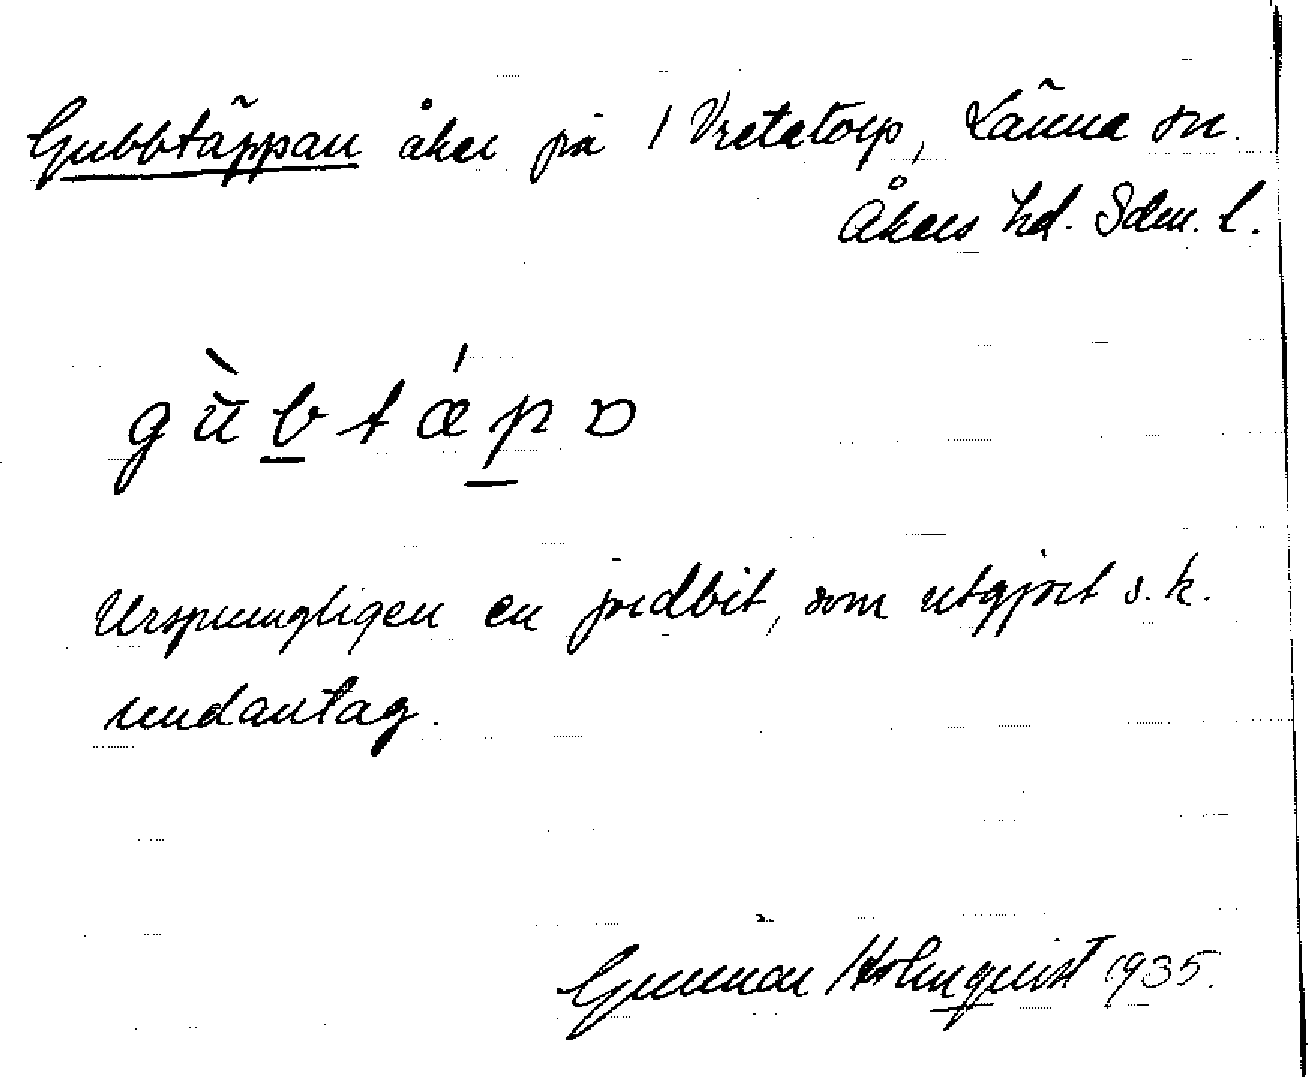 Gubbtäppan åker på 1 Vretatorp, Länna sn.
Åkers hd. Sdm. l.
gùbtǽpɒ
Ursprungligen en jordbit, som utgjort s.k.
undantag.
Gunnar Holmquist 1935.